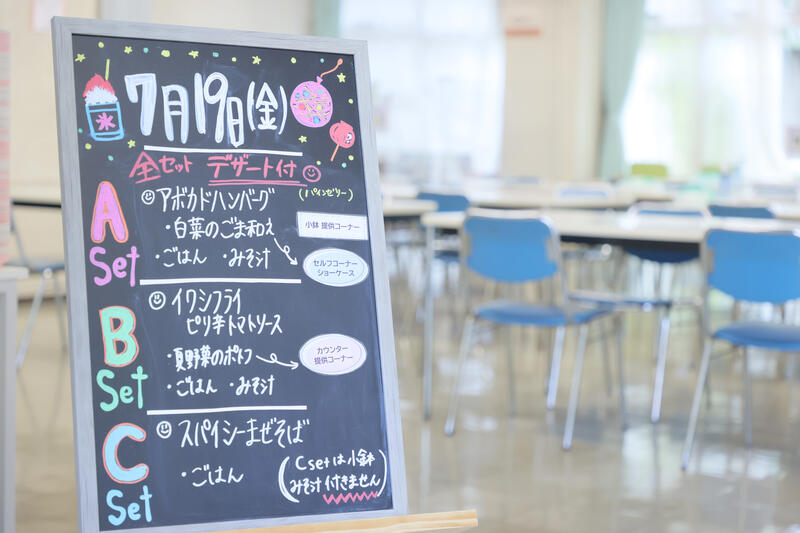 7月19日(金)
全セット デザート付
(パインゼリー)
A Set
アボカドハンバーグ
・白菜のごま和え
小鉢 提供コーナー
・ごはん ・みそ汁
セルフコーナー
ショーケース
B Set
イワシフライ
ピリ辛トマトソース
・夏野菜のポトフ
カウンター
提供コーナー
・ごはん ・みそ汁
C Set
スパイシーまぜそば
・ごはん
(C setは小鉢
みそ汁付きません)